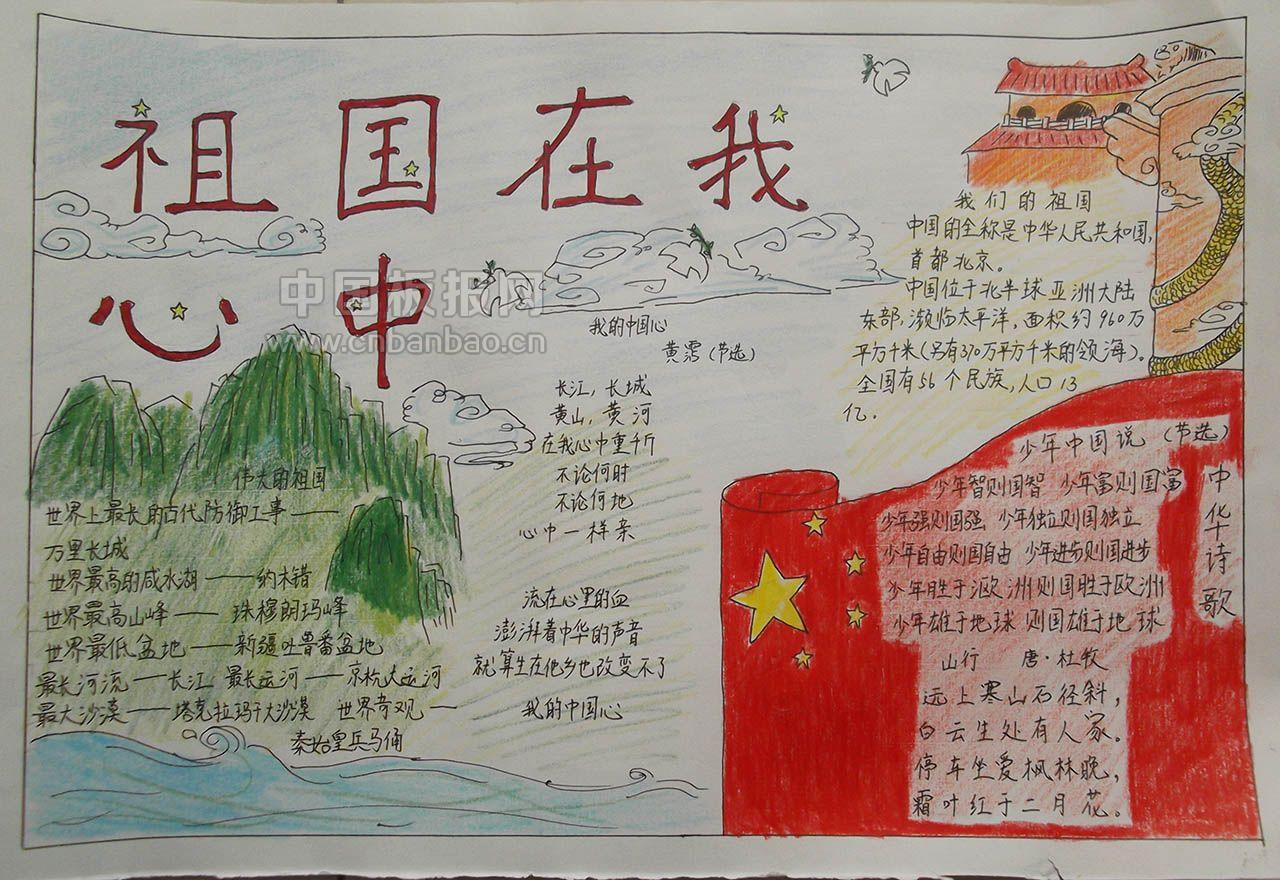 祖国在我
心中
中国板报网
www.cnbanbao.cn
我们的祖国
中国的全称是中华人民共和国,
首都北京。
中国位于北半球亚洲大陆
东部,濒临太平洋,面积约960万
平方千米(另有370万平方千米的领海)。
全国有56个民族,人口13
亿.
我的中国心
黄霑(节选)
长江,长城
黄山,黄河
在我心中重千斤
不论何时
不论何地
心中一样亲
流在心里的血
澎湃着中华的声音
就算生在他乡也改变不了
我的中国心
伟大的祖国
世界上最长的古代防御工事——
万里长城
世界最高的咸水湖——纳木错
世界最高山峰——珠穆朗玛峰
世界最低盆地——新疆吐鲁番盆地
最长河流—长江 最长运河——京杭大运河
最大沙漠——塔克拉玛干大沙漠 世界奇观—
秦始皇兵马俑
中华诗歌
少年中国说(节选)
少年智则国智 少年富则国富
少年强则国强 少年独立则国独立
少年自由则国自由 少年进步则国进步
少年胜于欧洲则国胜于欧洲
少年雄于地球 则国雄于地球
山行 唐·杜牧
远上寒山石径斜,
白云生处有人家。
停车坐爱枫林晚,
霜叶红于二月花。